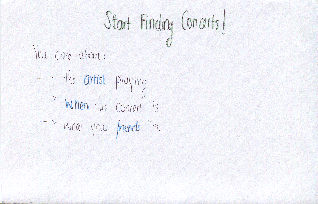 Start Finding Concerts!
You care about:
- the artist playing
- when the concert is
- your friends